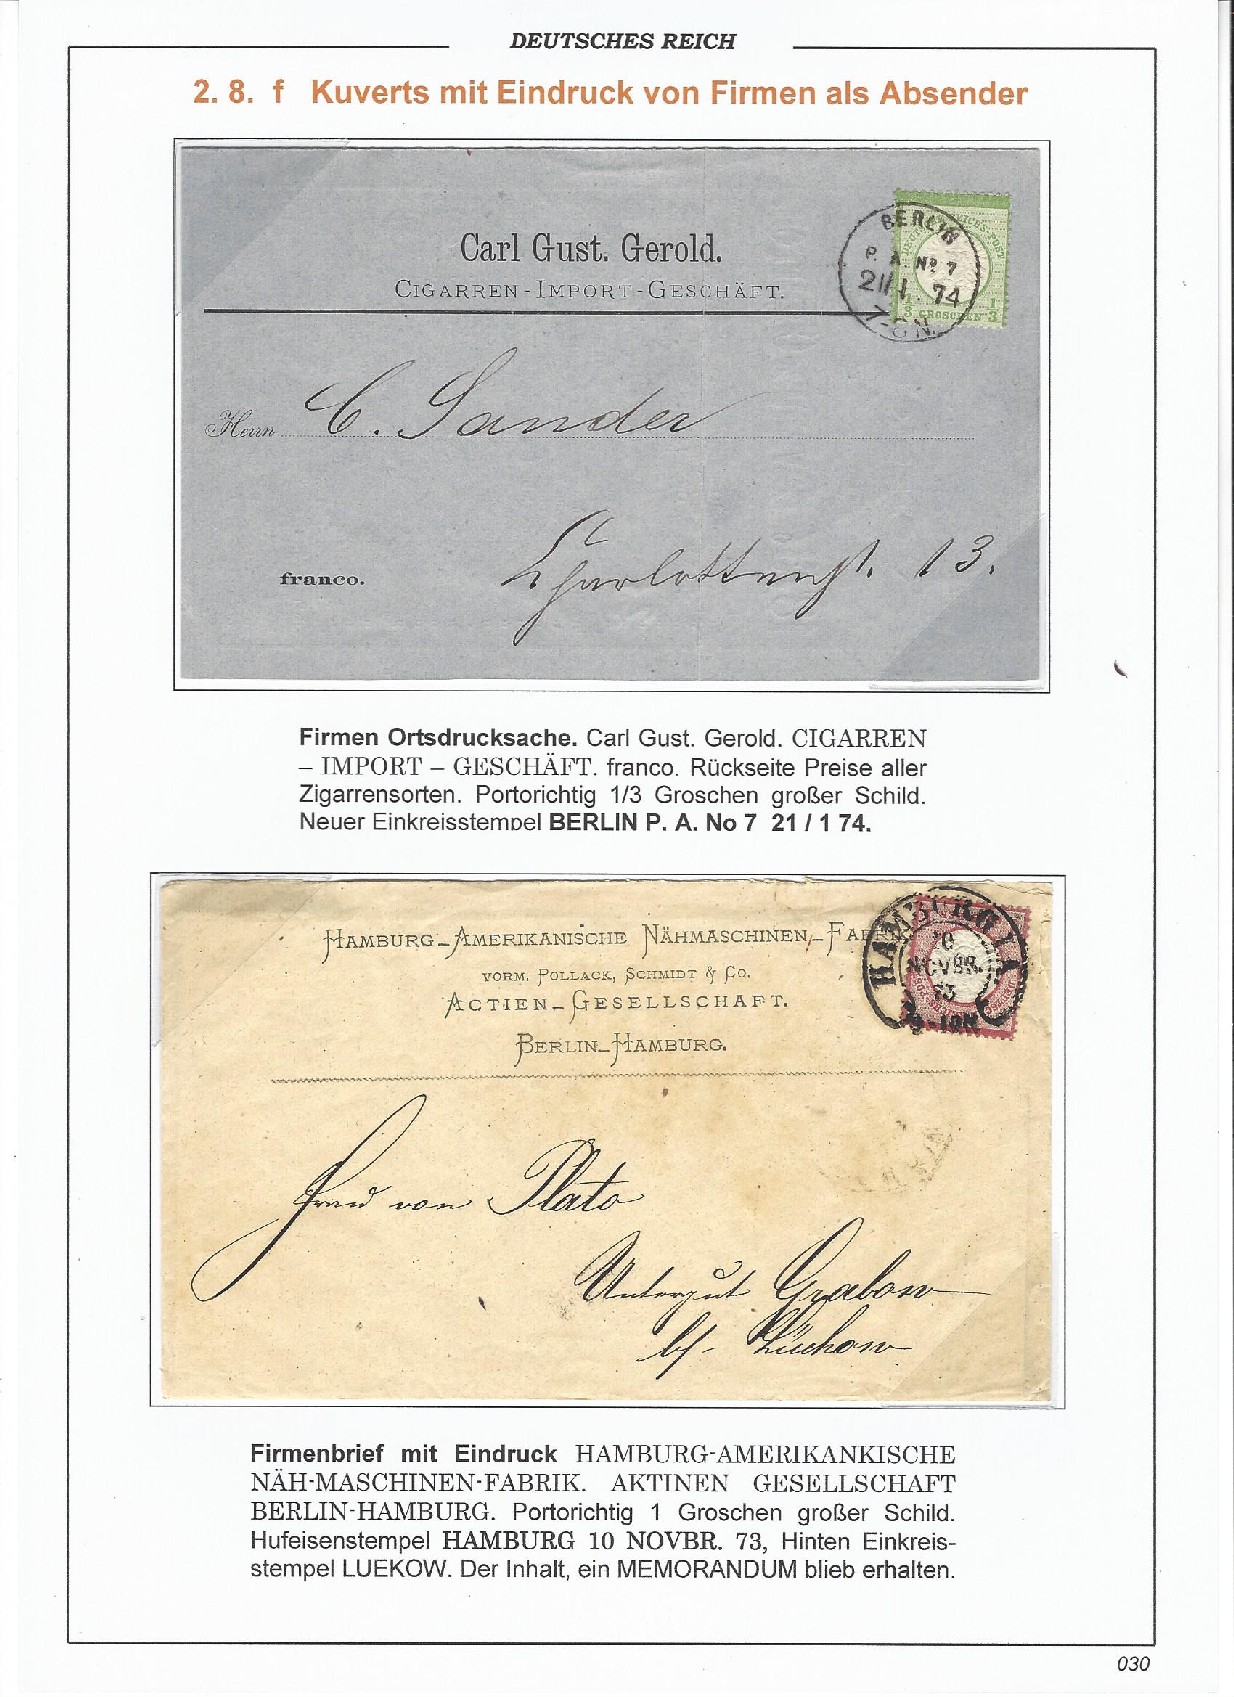 DEUTSCHES REICH
2. 8. f Kuverts mit Eindruck von Firmen als Absender
Carl Gust. Gerold.
CIGARREN-IMPORT-GESCHÄFT.
BERLIN
P. A. No 7
21/1. 74
7-8 N.
1/3 GROSCHEN 1/3
Herrn C. Sander
franco.
Charlottenst. 13.
Firmen Ortsdrucksache. Carl Gust. Gerold. CIGARREN
– IMPORT – GESCHÄFT. franco. Rückseite Preise aller
Zigarrensorten. Portorichtig 1/3 Groschen großer Schild.
Neuer Einkreisstempel BERLIN P. A. No 7 21 / 1 74.
HAMBURG-AMERIKANISCHE NÄHMASCHINEN,-FABR
VORM. POLLACK, SCHMIDT & CO.
ACTIEN-GESELLSCHAFT.
BERLIN-HAMBURG.
HAMBURG I.A.
10
NOVBR.
73
9-10N
Frau von Plato
Untergut Grabow
b/. Lüchow
Firmenbrief mit Eindruck HAMBURG-AMERIKANKISCHE
NÄH-MASCHINEN-FABRIK. AKTINEN GESELLSCHAFT
BERLIN-HAMBURG. Portorichtig 1 Groschen großer Schild.
Hufeisenstempel HAMBURG 10 NOVBR. 73, Hinten Einkreis-
stempel LUEKOW. Der Inhalt, ein MEMORANDUM blieb erhalten.
030